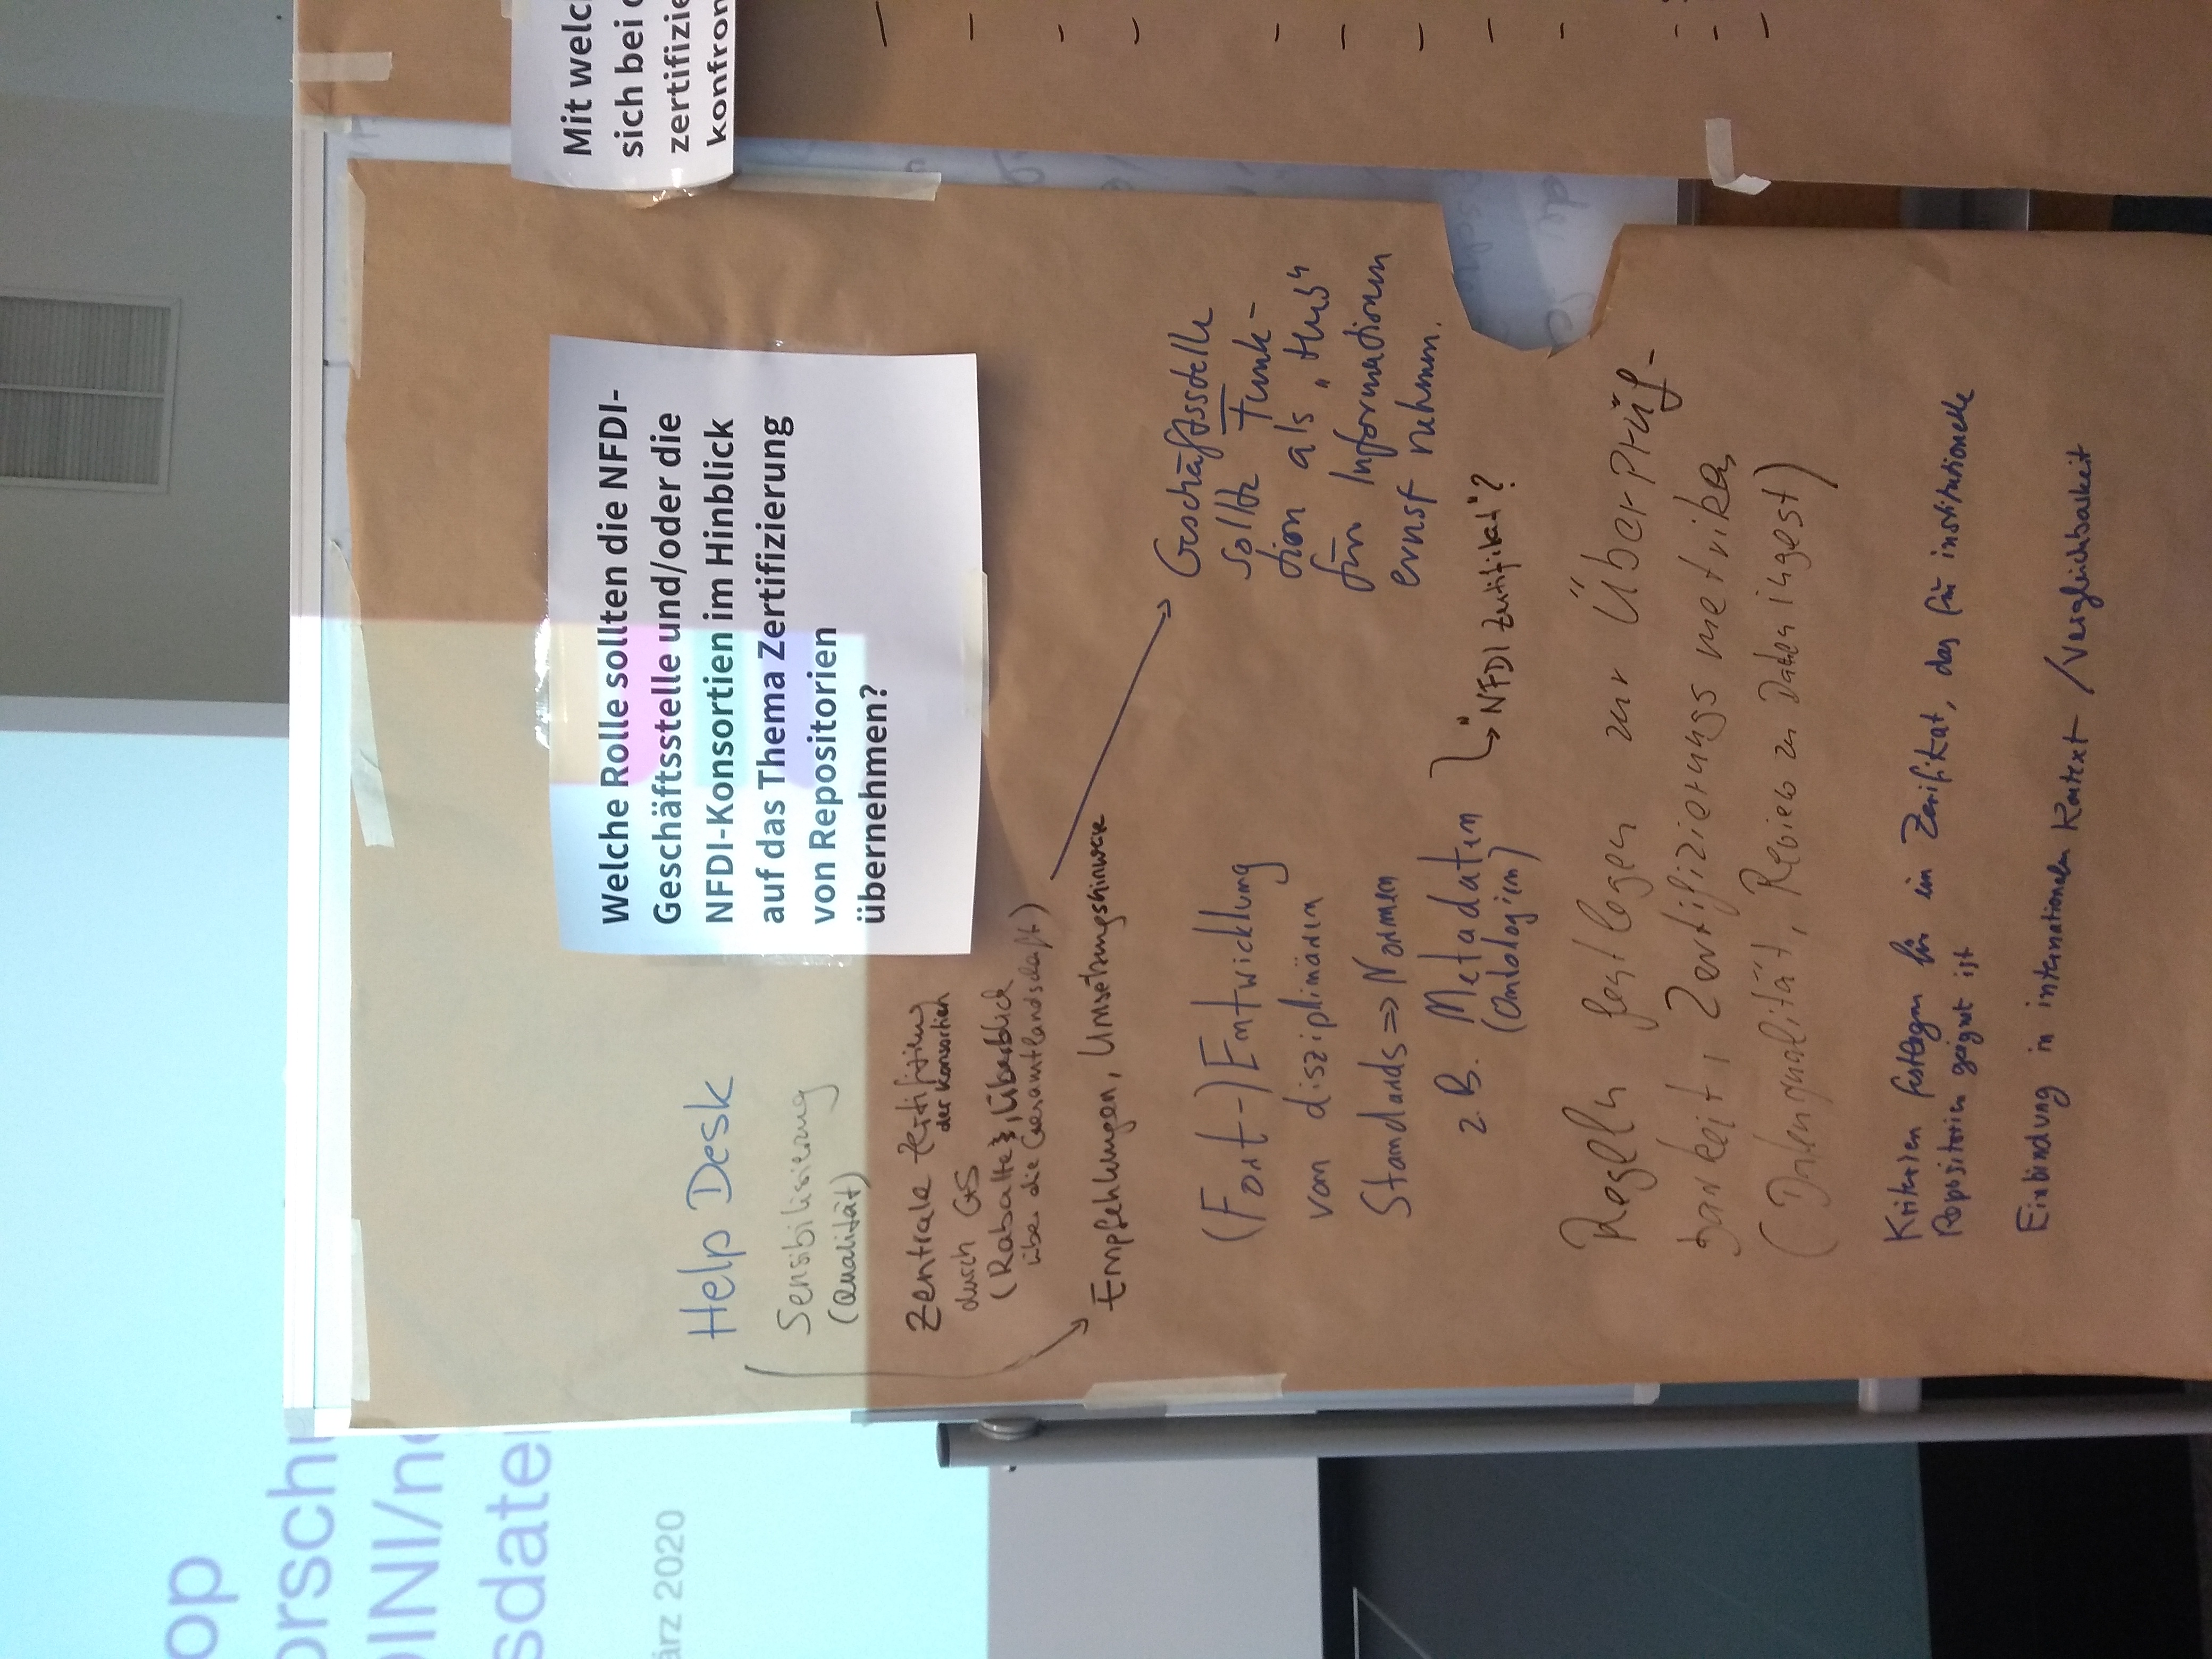 Welche Rolle sollten die NFDI-
Geschäftsstelle und/oder die
NFDI-Konsortien im Hinblick
auf das Thema Zertifizierung
von Repositorien
übernehmen?
Help Desk
Sensibilisierung
(Qualität)
Zentrale
der Konsortien
durch GS
(Rabatte), Überblick
über die Gesamtlandschaft)
Empfehlungen, Umsetzungshinweise
Geschäftsstelle
sollte Funk-
tion als „Hub“
für Informationen
ernst nehmen.
(Fort-)Entwicklung
von disziplinären
Standards => Normen
z.B. Metadaten
(Ontologien)
"NFDI Zertifikat"?
Regeln festlegen zur Überprüf-
barkeit, Zertifizierungsmetriken
(Datenqualität, Review zu Dateningest)
Kriterien festlegen für ein Zerifikat, das für institutionelle
Repositorien geeignet ist
Einbindung in internationalen Kontext / Vergleichbarkeit
Mit welc
sich bei d
zertifizie
konfron
op
orsch
DINI/ne
sdate
ärz 2020